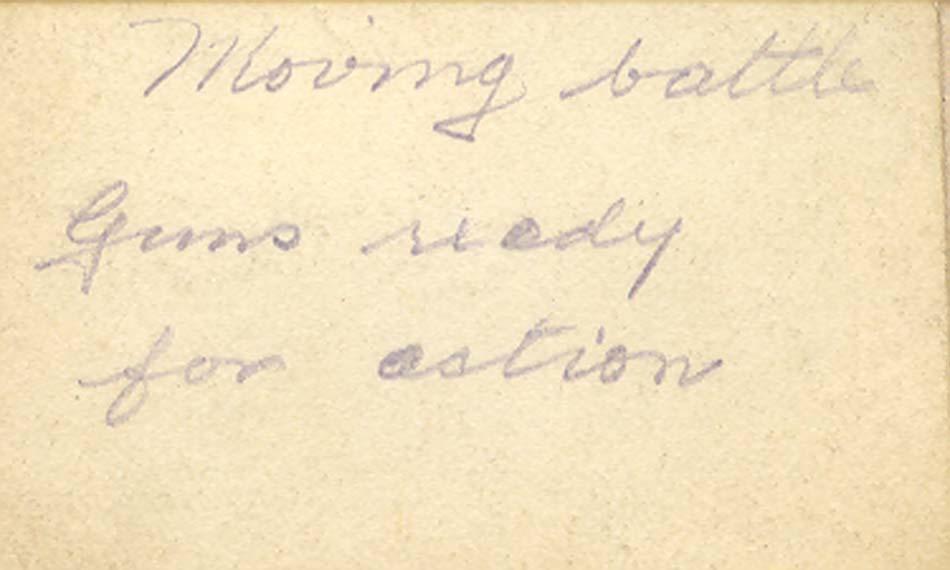 Moving battle
Guns ready
for action